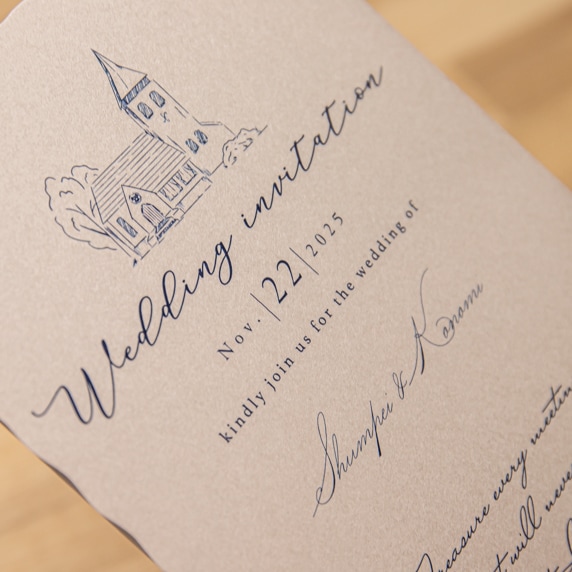 Wedding invitation
Nov. | 22 | 2025
kindly join us for the wedding of
Shumpei & Konomi
Treasure every meetin
t will neve